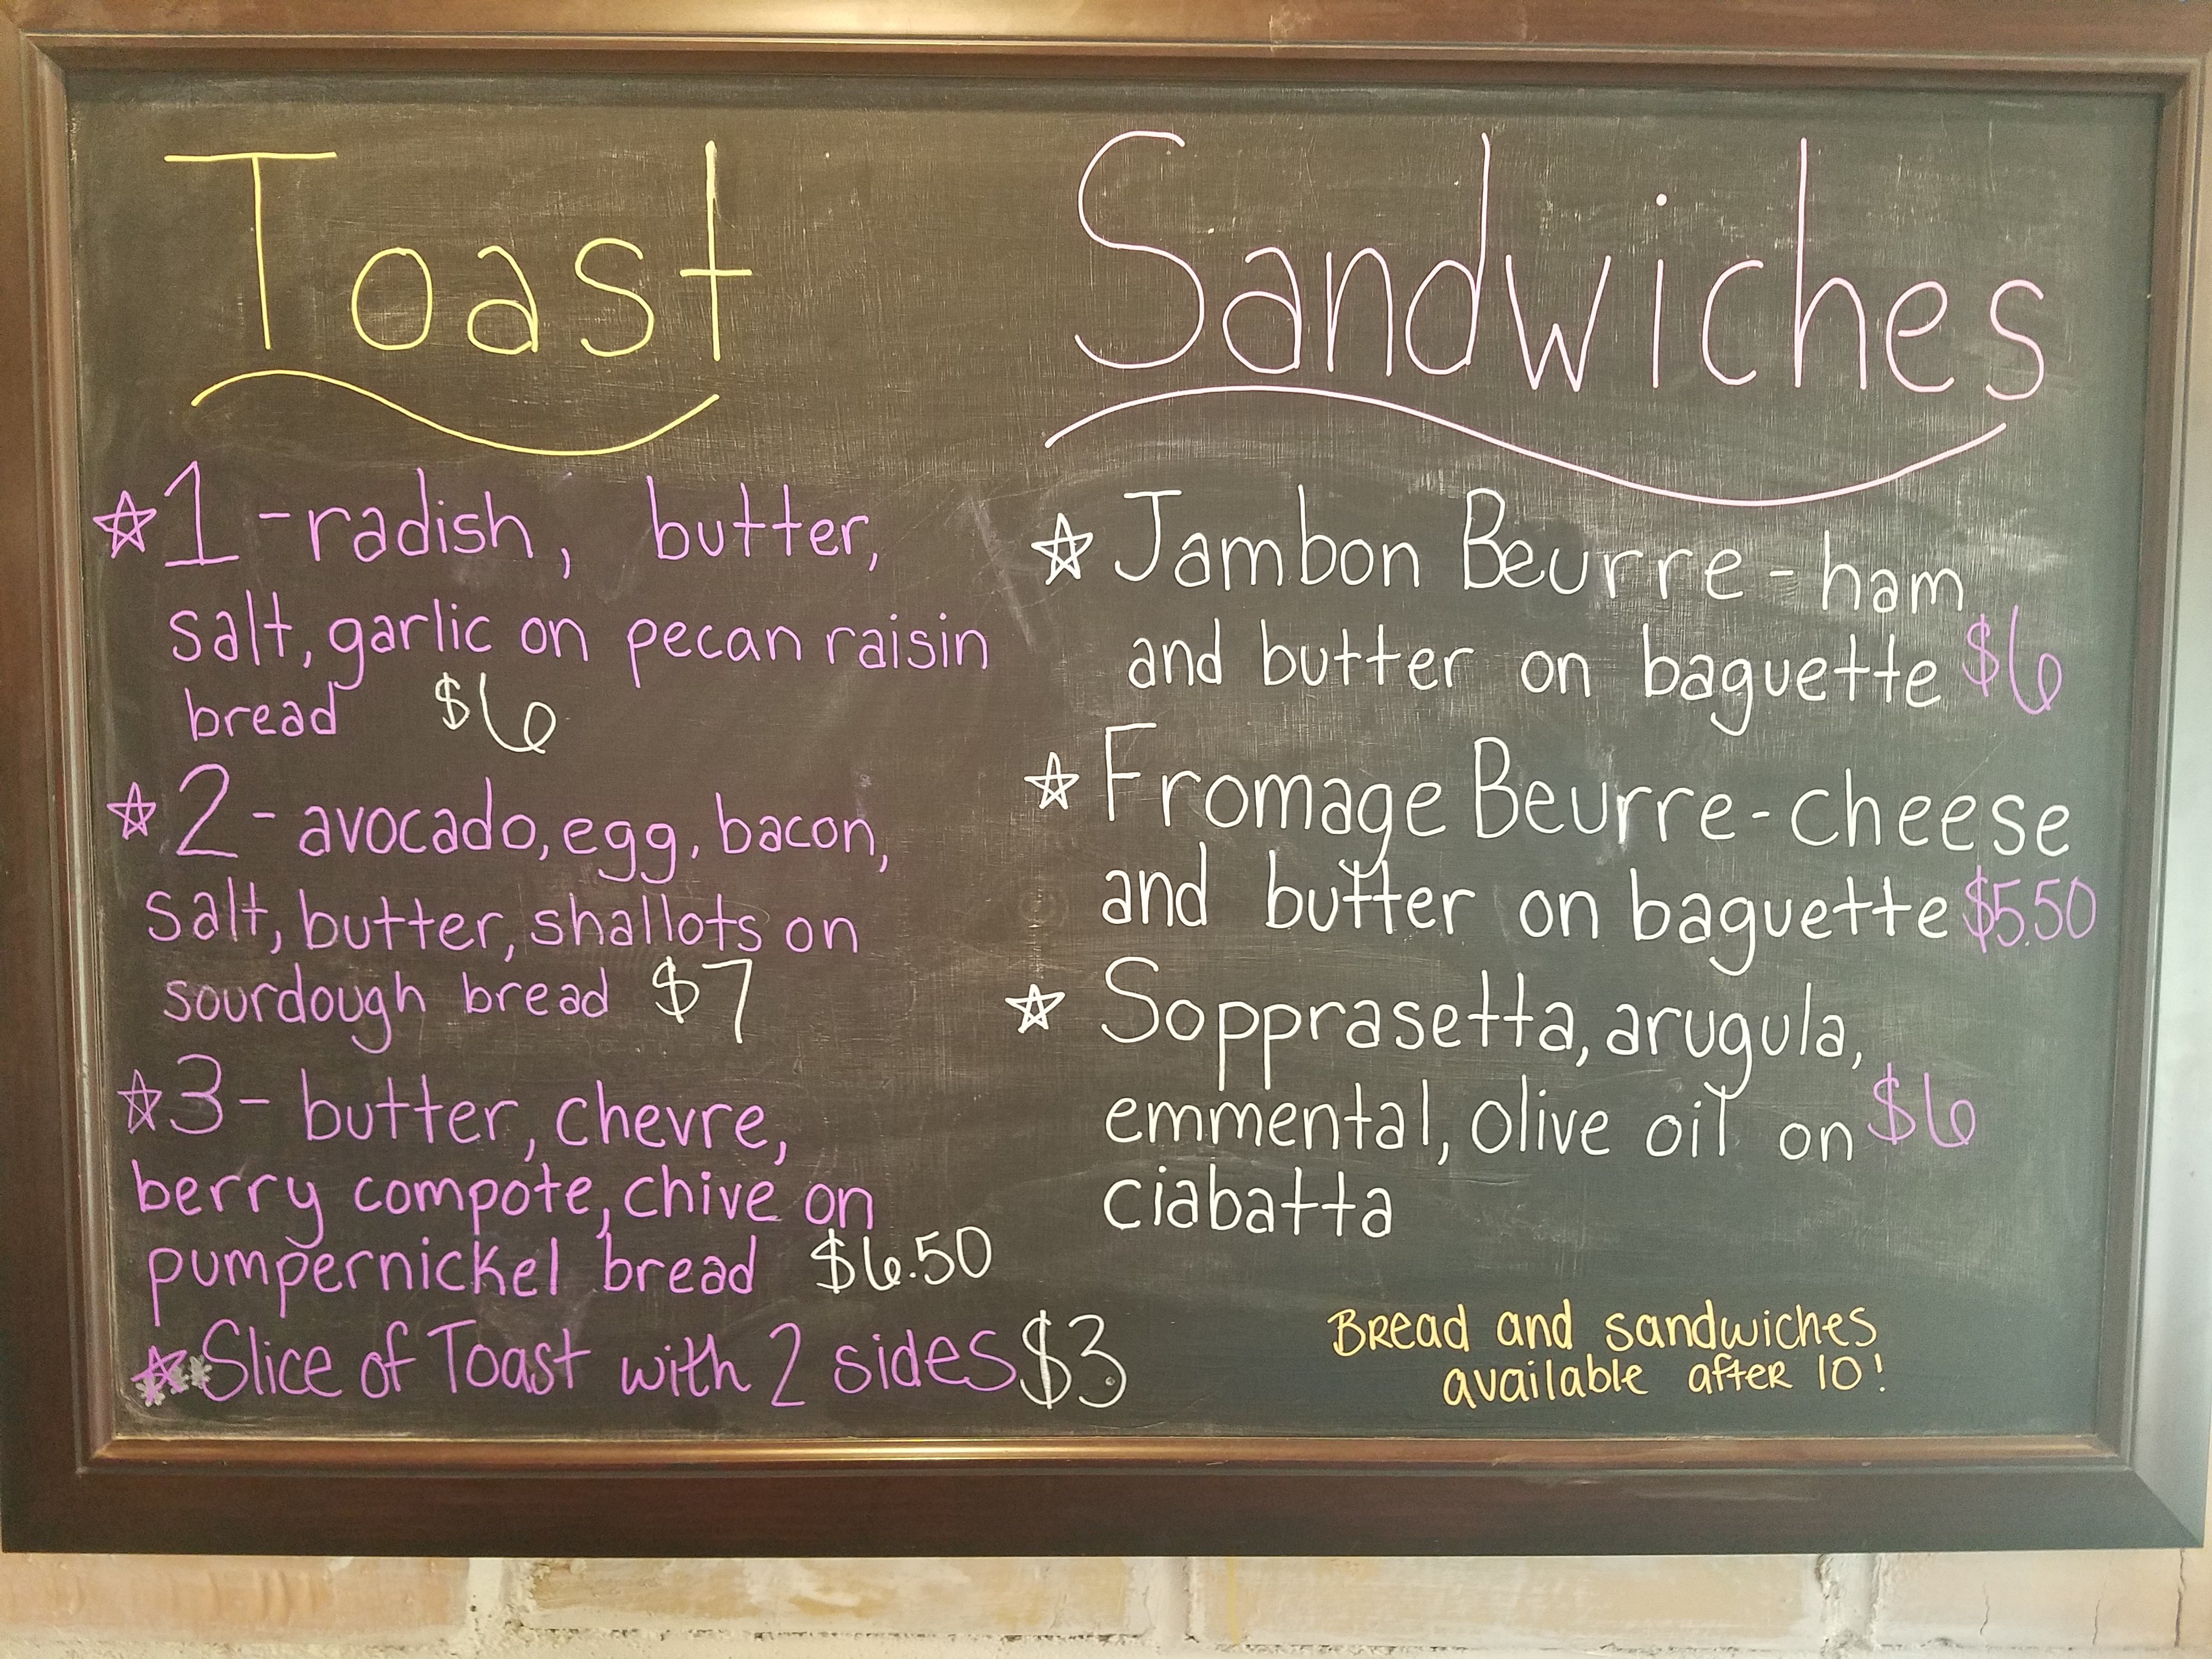 Toast
1 - radish, butter,
salt, garlic on pecan raisin
bread $6
2 - avocado, egg, bacon,
salt, butter, shallots on
sourdough bread $7
3 - butter, chevre,
berry compote, chive on
pumpernickel bread $6.50
Slice of Toast with 2 sides $3
Sandwiches
Jambon Beurre - ham
and butter on baguette $6
Fromage Beurre - cheese
and butter on baguette $5.50
Sopprasetta, arugula,
emmental, olive oil on $6
ciabatta
Bread and sandwiches
available after 10!